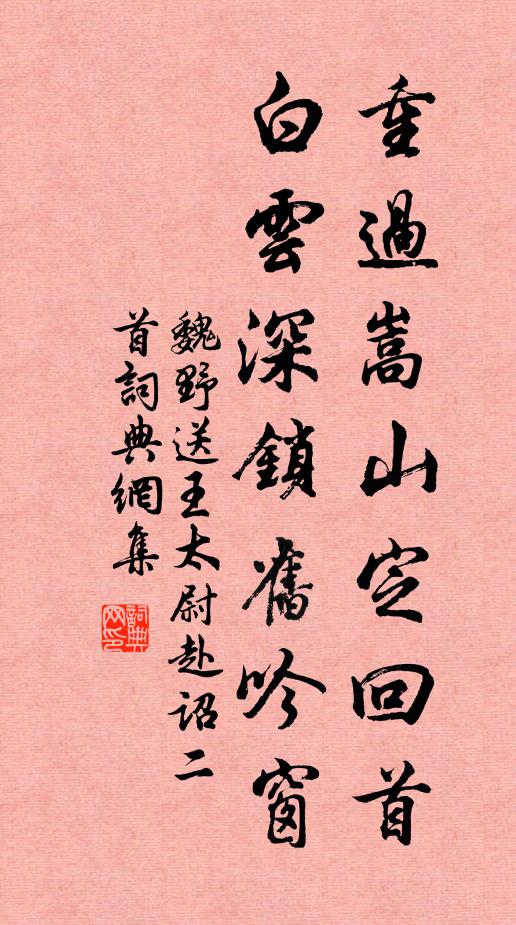 重過嵩山定回首
白雲深鎖舊吟窗
魏野送王太尉赴詔二
首詞典網集
詞典
网印